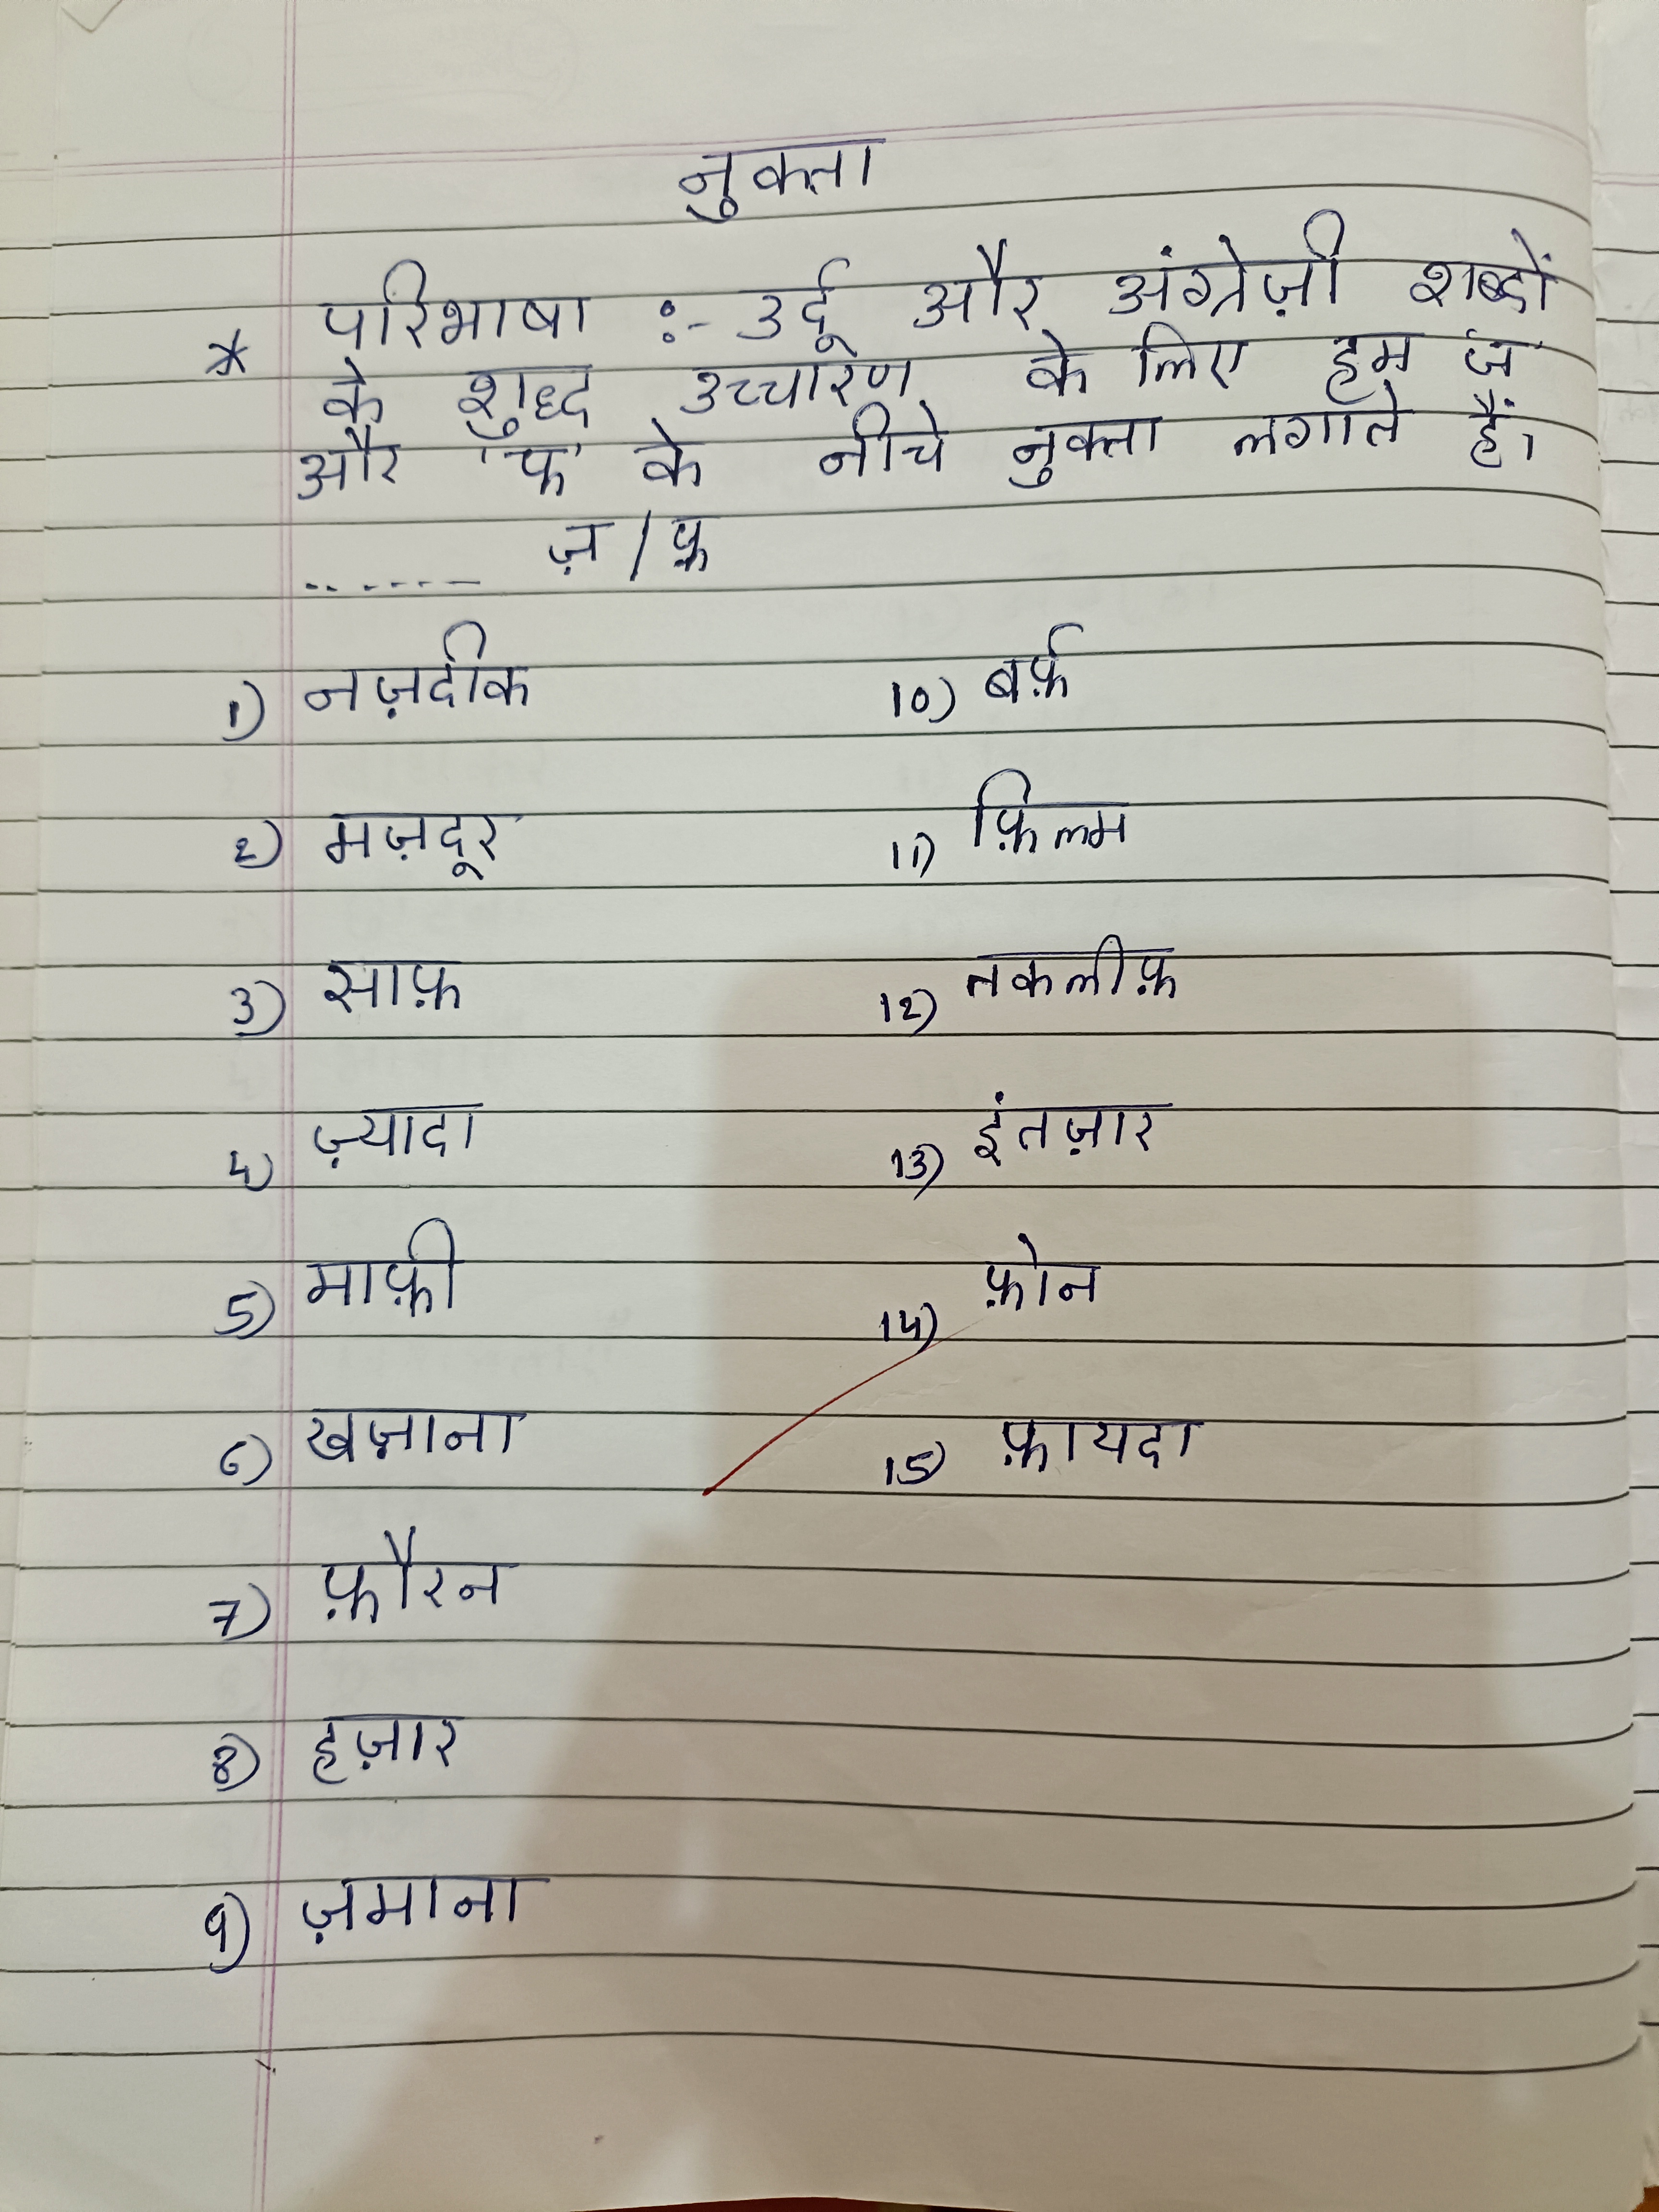 नुक्ता
* परिभाषा :- उर्दू और अंग्रेज़ी शब्दों
के शुद्ध उच्चारण के लिए हम 'ज'
और 'फ' के नीचे नुक्ता लगाते हैं।
....... ज़ / फ़
1) नज़दीक 10) बर्फ़
2) मज़दूर 11) फ़िल्म
3) साफ़ 12) तकलीफ़
4) ज़्यादा 13) इंतज़ार
5) माफ़ी 14) फ़ोन
6) खज़ाना 15) फ़ायदा
7) फ़ौरन
8) हज़ार
9) ज़माना